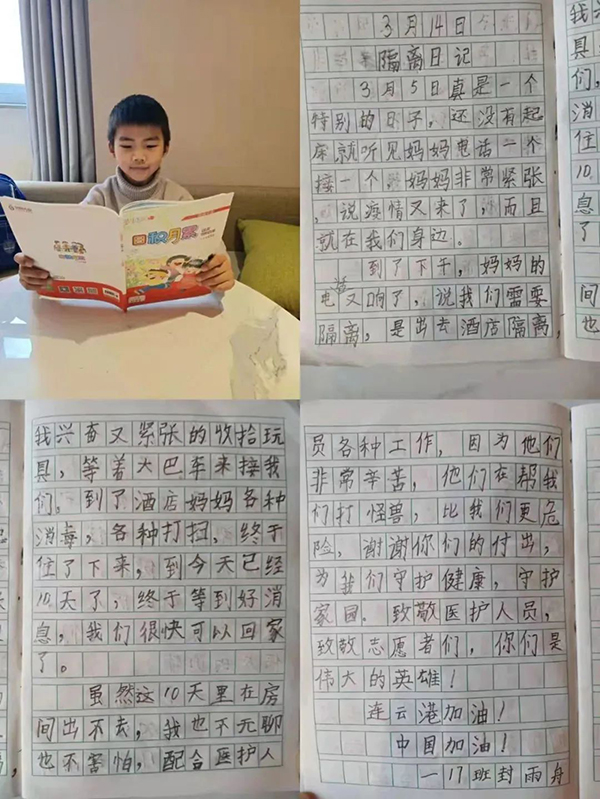 日积月累
3月14日
隔离日记
3月5日真是一个
特别的日子，还没有起
床就听见妈妈电话一个
接一个，妈妈非常紧张
，说疫情又来了，而且
就在我们身边。
到了下午，妈妈的
电话又响了，说我们需要
隔离，是出去酒店隔离，
我兴奋又紧张的收拾玩
具，等着大巴车来接我
们，到了酒店妈妈各种
消毒，各种打扫，终于
住了下来，到今天已经
10天了，终于等到好消
息，我们很快可以回家
了。
虽然这10天里在房
间出不去，我也不无聊
也不害怕，配合医护人
员各种工作，因为他们
非常辛苦，他们在帮我
们打怪兽，比我们更危
险，谢谢你们的付出，
为我们守护健康，守护
家园。致敬医护人员，
致敬志愿者们，你们是
伟大的英雄！
连云港加油！
中国加油！
一17班封雨舟